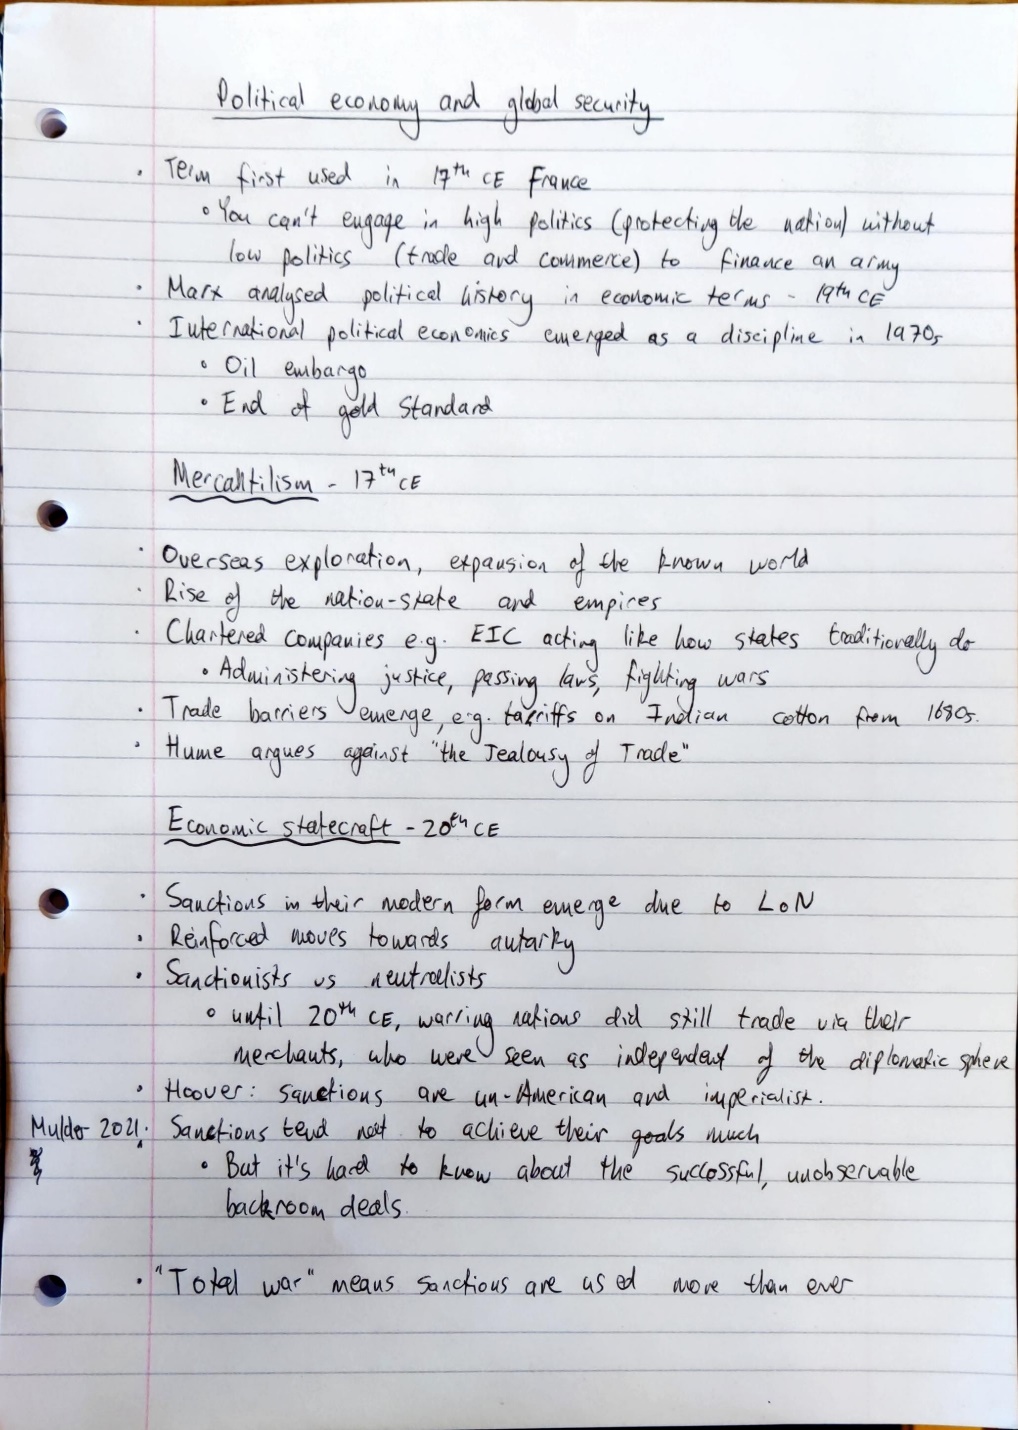 Political economy and global security
· Term first used in 17th CE France
• You can't engage in high politics (protecting the nation) without
low politics (trade and commerce) to finance an army
· Marx analysed political history in economic terms - 19th CE
· International political economics emerged as a discipline in 1970s
• Oil embargo
• End of gold Standard
Mercantilism - 17th CE
· Overseas exploration, expansion of the known world
· Rise of the nation-state and empires
· Chartered companies e.g. EIC acting like how states traditionally do
• Administering justice, passing laws, fighting wars
· Trade barriers emerge, e.g. tarriffs on Indian cotton from 1680s.
· Hume argues against "the Jealousy of Trade"
Economic statecraft - 20th CE
· Sanctions in their modern form emerge due to LoN
· Reinforced moves towards autarky
· Sanctionists vs neutralists
• until 20th CE, warring nations did still trade via their
merchants, who were seen as independent of the diplomatic sphere
· Hoover: sanctions are un-American and imperialist.
Mulder 2021 · Sanctions tend not to achieve their goals much
• But it's hard to know about the successful, unobservable
backroom deals.
· "Total war" means sanctions are used more than ever